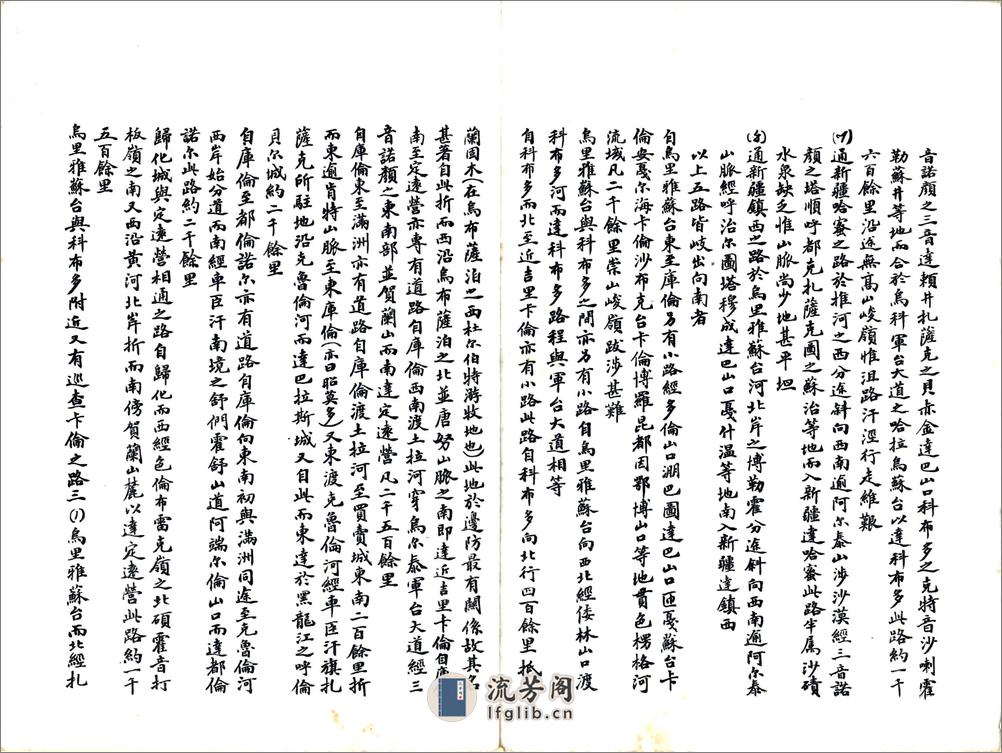 音諾顏之三音達賴井扎薩克之貝亦金達巴山口科布多之克特音沙喇霍
勒蘇井等地而合於烏科軍台大道之哈拉烏蘇台以達科布多此路約一千
六百餘里沿途無高山峻嶺惟沮路汗涇行走維艱
通新疆哈蜜之路於推河之西分途斜向西南逾阿尔泰山涉沙漠經三音諾
顏之塔順呼都克扎薩克圖之蘇治等地而入新疆達哈蜜此路半屬沙磧
水泉缺乏惟山脈尚少地甚平坦
(5)通新疆鎮西之路於烏里雅蘇台河北岸之博勒霍分途斜向西南逾阿尔泰
山脈經呼治尔圖塔穆成達巴山口戞什温等地南入新疆達鎮西
以上五路皆岐出向南者
自烏里雅蘇台東至庫倫另有小路經多倫山口溯巴圖達巴山口匝戞蘇台卡
倫安戞尔海卡倫沙布克台卡倫博羅昆都因鄂博山口等地貫色楞格河
流域凡二千餘里崇山峻嶺跋涉甚難
烏里雅蘇台與科布多之間亦另有小路自烏里雅蘇台向西北經倭林山口渡
科布多河而達科布多路程與軍台大道相等
自科布多而北至近吉里卡倫亦有小路此路自科布多向北行四百餘里抵
蘭固木在烏布薩泊之西杜尔伯特游牧地也此地於邊防最有關係故其名
甚著自此折而西沿烏布薩泊之北並唐努山脈之南即達近吉里卡倫自庫
南至定遠營亦專有道路自庫倫西南渡土拉河穿烏尔泰軍台大道經三
音諾顏之東南部並賀蘭山而南達定遠營凡二千五百餘里
自庫倫東至滿洲亦有道路自庫倫渡土拉河至買賣城東南二百餘里折
而東逾肯特山脈至東庫倫(亦曰昭莫多)又東渡克魯倫河經車臣汗旗扎
薩克所駐地沿克魯倫河而達巴拉斯城又自此而東達於黑龍江之呼倫
貝尔城約二千餘里
自庫倫至都倫諾尔亦有道路自庫倫向東南初與滿洲同途至克魯倫河
西岸始分道而南經車臣汗南境之舒們霍舒山道阿端尔倫山口而達都倫
諾尔此路約二千餘里
歸化城與定遠營相通之路自歸化而西經色倫布雷克嶺之北碩霍音打
板嶺之南又西沿黃河北岸折而南傍賀蘭山麓以達定遠營此路約一千
五百餘里
烏里雅蘇台與科布多附近又有巡查卡倫之路三(1)烏里雅蘇台而北經扎
流芳阁
lfglib.cn